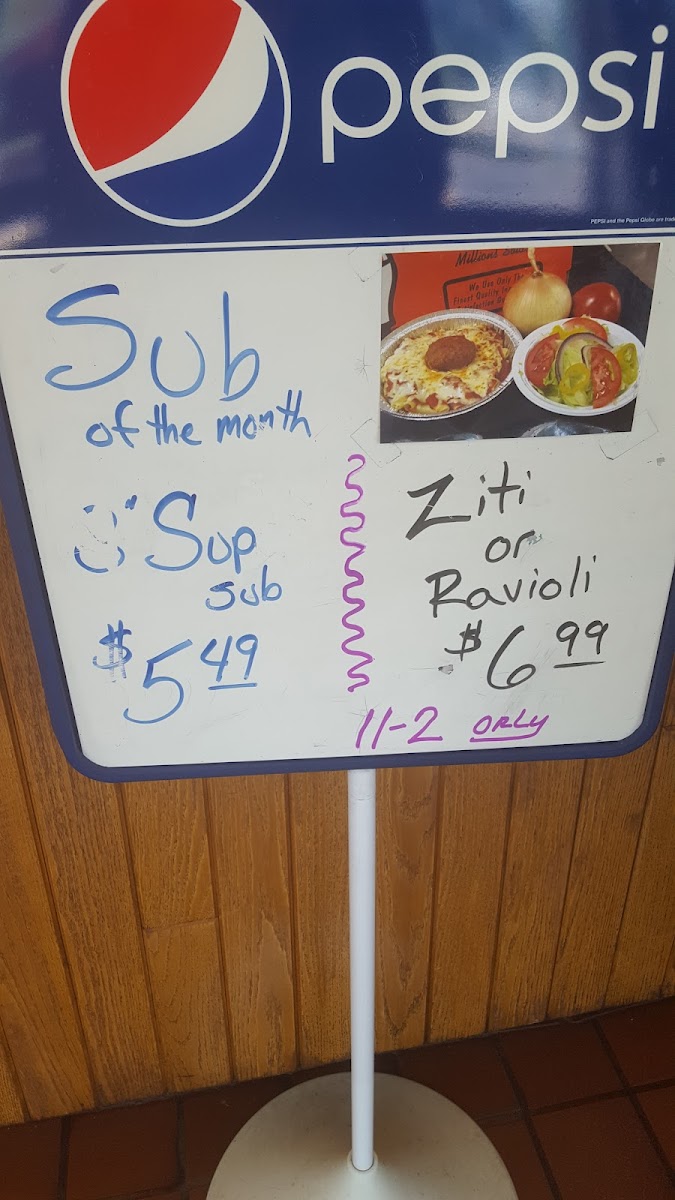 pepsi
PEPSI and the Pepsi Globe are
Millions
We Use Only The
Finest Quality
Sub
of the month
Sup
sub
$5 49
Ziti
or
Ravioli
$6 99
11-2 ONLY